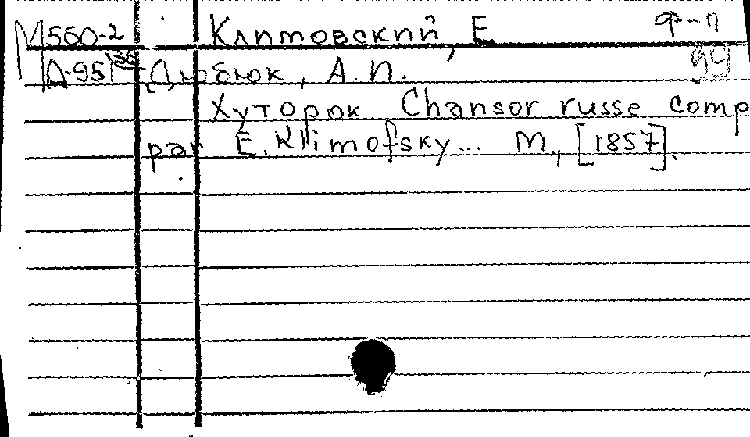 М560-2 Климовский, Е. ф-п
Д-95 Дюбюк, А.И. 99
Хуторок Chanson russe comp
par E. Klimofsky... М., [1857].